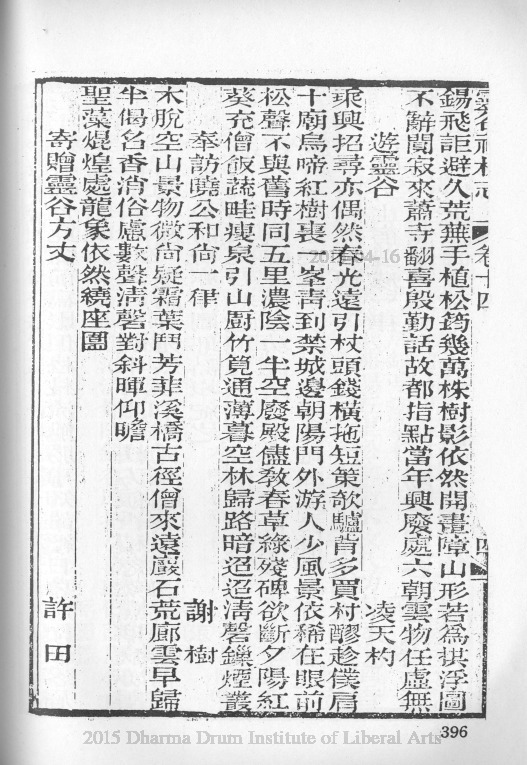 靈谷禪林志　卷十四　四
錫飛詎避久荒蕪手植松筠幾萬株樹影依然開畫障山形若為拱浮圖
不辭闃寂來蕭寺翻喜殷勤話故都指點當年興廢處六朝雲物任虛無
遊靈谷　凌天杓
乘興招尋亦偶然春光遠引杖頭錢橫拖短策欹驢背多買村醪趁僕肩
十廟鳥啼紅樹裏一峯青到禁城邊朝陽門外游人少風景依稀在眼前
松聲不與舊時同五里濃陰一半空廢殿儘教春草綠殘碑欲斷夕陽紅
葵充僧飯蔬畦瘦泉引山廚竹筧通薄暮空林歸路暗迢迢清磬鏁煙叢
奉訪曉公和尚一律　謝樹
木脫空山景物微尚疑霜葉鬥芳菲溪橋古徑僧來遠巖石荒廊雲早歸
半偈名香消俗慮數聲清磬對斜暉仰瞻
聖藻焜煌處龍象依然繞座圍
寄贈靈谷方丈　許田
396
2015-04-16
2015 Dharma Drum Institute of Liberal Arts